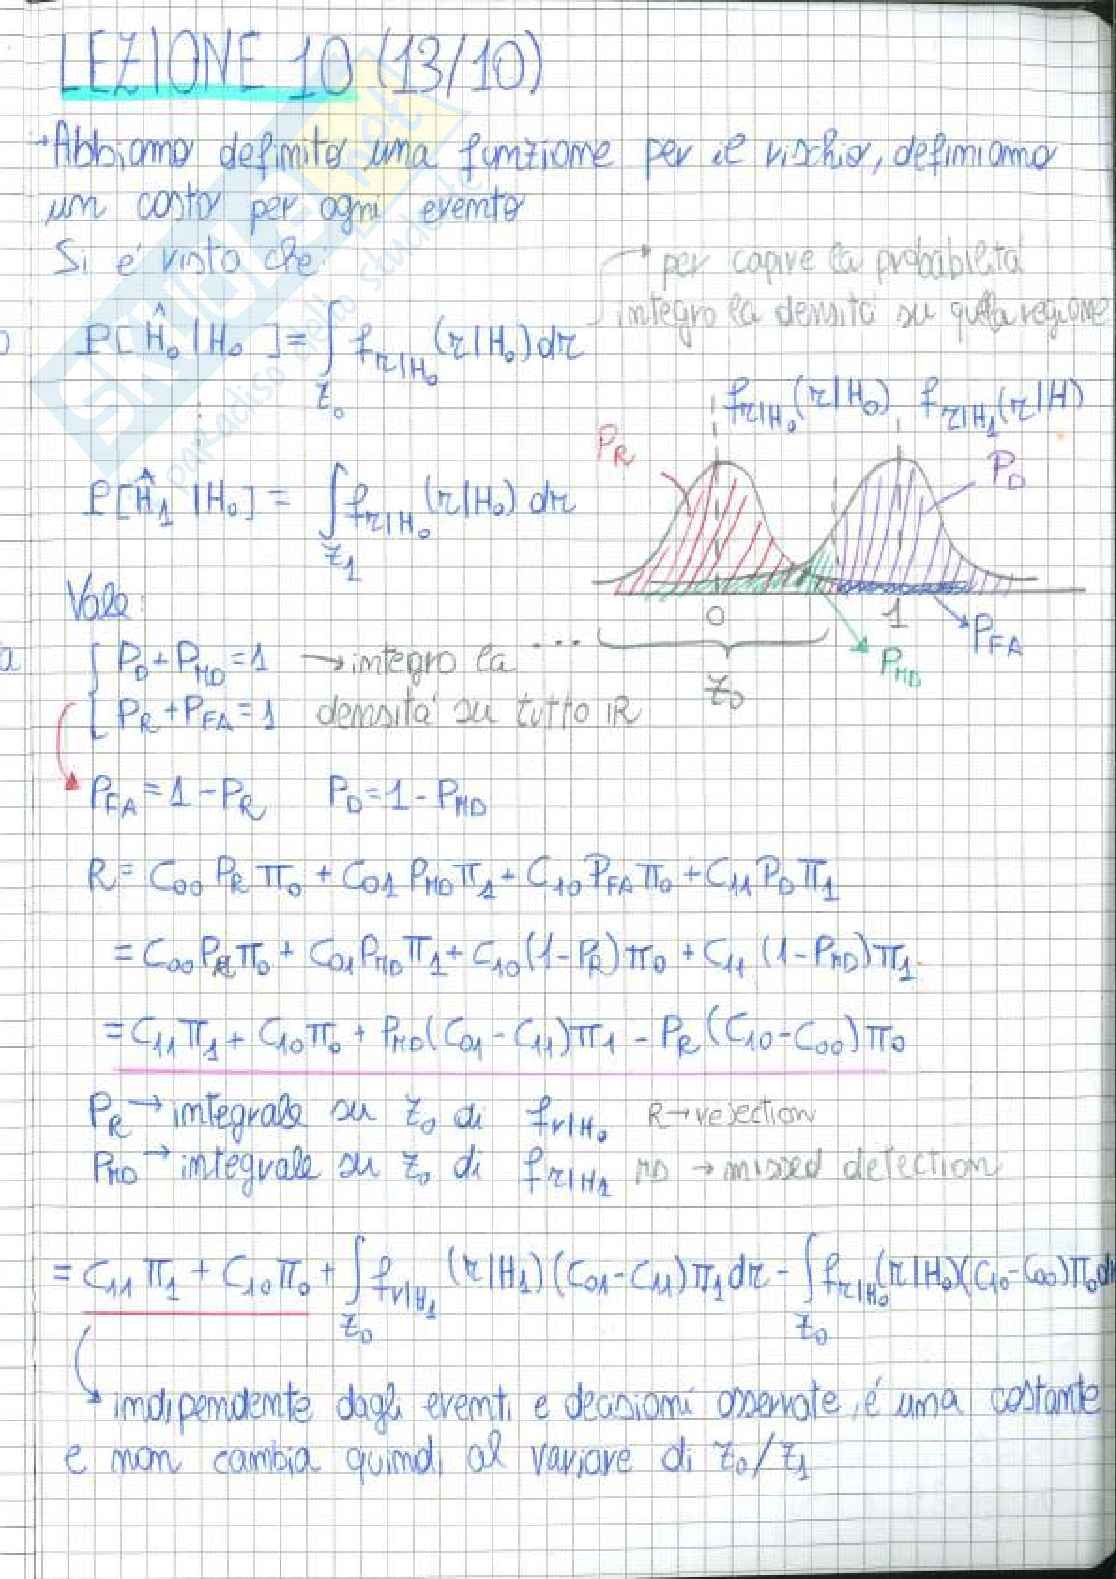 LEZIONE 10 (13/10)
→Abbiamo definito una funzione per il rischio, definiamo
un costo per ogni evento
Si é visto che:
→ per capire la probabilità
integro la densità su quella regione
P[Ĥ₀|H₀] = ∫_Z₀ f_r|H₀ (r|H₀) dr
f_r|H₀ (r|H₀) f_r|H₁ (r|H)
P_R
P_D
P[Ĥ₁|H₀] = ∫_Z₁ f_r|H₀ (r|H₀) dr
0 1
P_FA
P_MD
Z₀
Vale:
{ P_D + P_MD = 1 → integro la ...
P_R + P_FA = 1 densità su tutto ℝ
P_FA = 1 - P_R P_D = 1 - P_MD
R = C₀₀ P_R π₀ + C₀₁ P_MD π₁ + C₁₀ P_FA π₀ + C₁₁ P_D π₁
= C₀₀ P_R π₀ + C₀₁ P_MD π₁ + C₁₀ (1-P_R) π₀ + C₁₁ (1-P_MD) π₁
= C₁₁ π₁ + C₁₀ π₀ + P_MD (C₀₁ - C₁₁) π₁ - P_R (C₁₀ - C₀₀) π₀
P_R → integrale su Z₀ di f_r|H₀ R → rejection
P_MD → integrale su Z₀ di f_r|H₁ MD → missed detection
= C₁₁ π₁ + C₁₀ π₀ + ∫_Z₀ f_r|H₁ (r|H₁) (C₀₁ - C₁₁) π₁ dr - ∫_Z₀ f_r|H₀ (r|H₀)(C₁₀ - C₀₀) π₀ dr
indipendente dagli eventi e decisioni osservate, é una costante
e non cambia quindi al variare di Z₀/Z₁
SKUOLA.net
paradiso dello studente